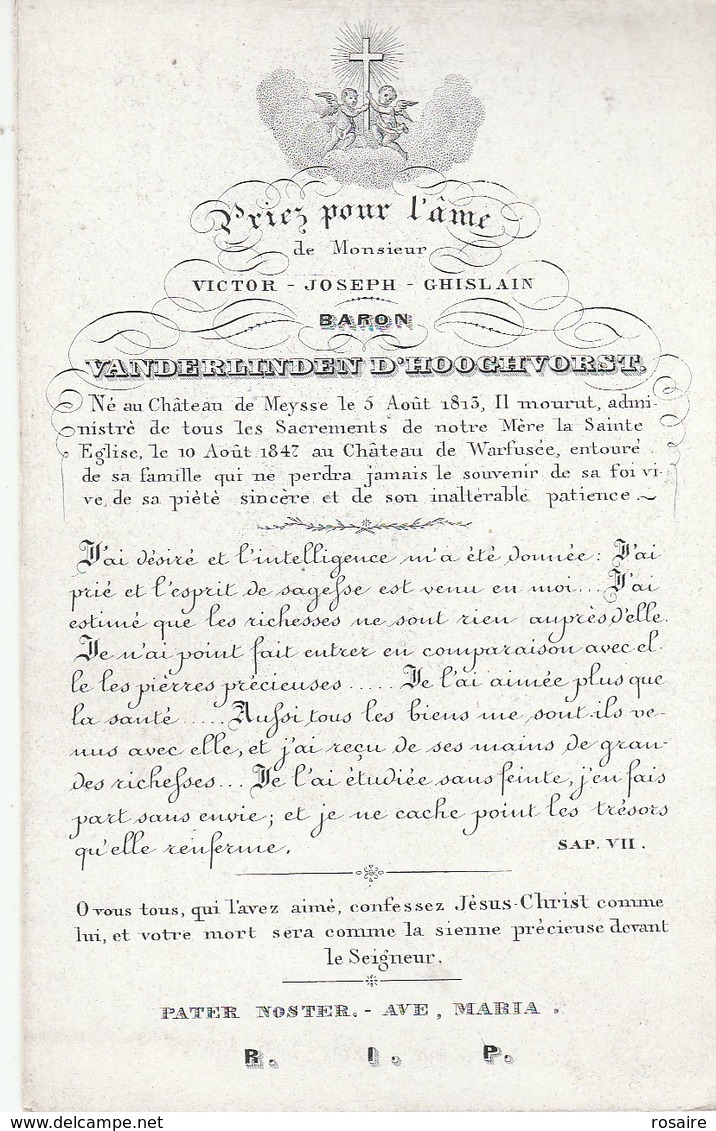 Priez pour l'âme
de Monsieur
VICTOR - JOSEPH - GHISLAIN
BARON
VANDERLINDEN D'HOOGHVORST.
Né au Château de Meysse le 5 Août 1813, Il mourut, admi-
nistré de tous les Sacrements de notre Mère la Sainte
Eglise, le 10 Août 1847 au Château de Warfusée, entouré
de sa famille qui ne perdra jamais le souvenir de sa foi vi-
ve, de sa piété sincère et de son inaltérable patience.
J'ai désiré et l'intelligence m'a été donnée: J'ai
prié et l'esprit de sagesse est venu en moi... J'ai
estimé que les richesses ne sont rien auprès d'elle.
Je n'ai point fait entrer en comparaison avec el-
le les pièrres précieuses ..... Je l'ai aimée plus que
la santé ..... Aussi tous les biens me sont-ils ve-
nus avec elle, et j'ai reçu de ses mains de gran-
des richesses... Je l'ai étudiée sans feinte, j'en fais
part sans envie; et je ne cache point les trésors
qu'elle renferme.
SAP. VII.
O vous tous, qui l'avez aimé, confessez Jésus-Christ comme
lui, et votre mort sera comme la sienne précieuse devant
le Seigneur.
PATER NOSTER. - AVE, MARIA.
R. I. P.
delcampe.net
rosaire